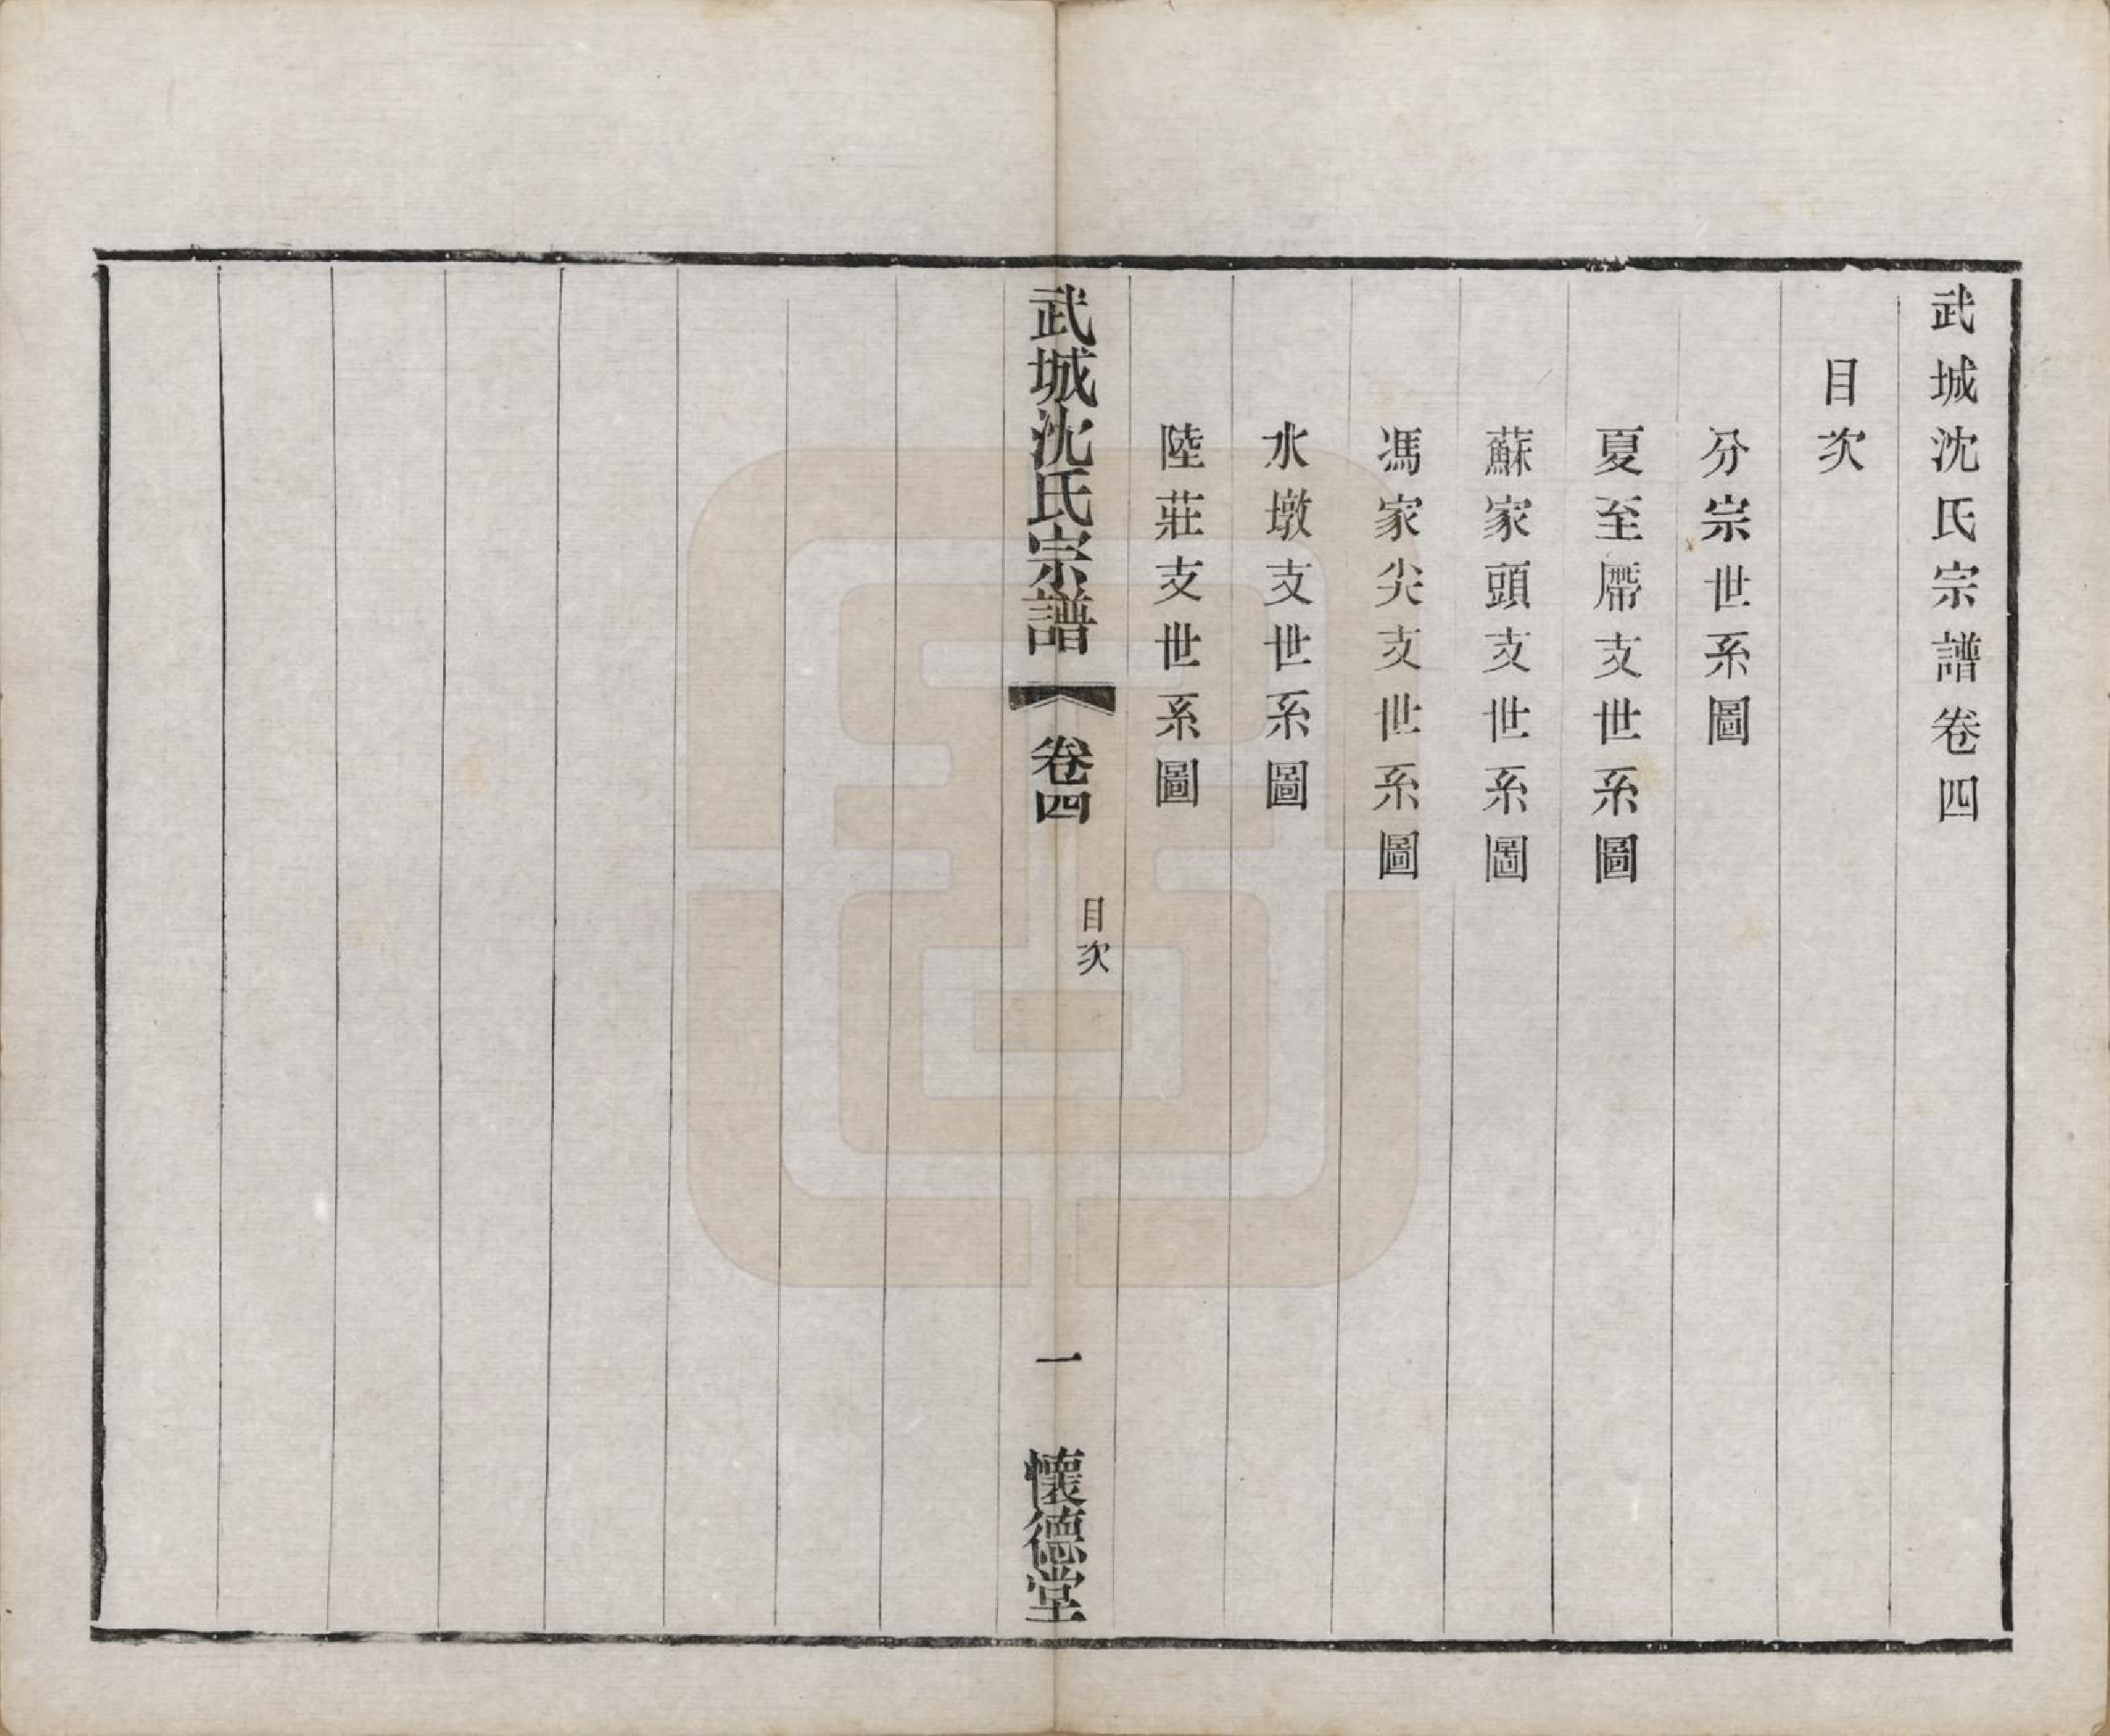 武城沈氏宗譜卷四
目次
分宗世系圖
夏至廗支世系圖
蘇家頭支世系圖
馮家尖支世系圖
水墩支世系圖
陸莊支世系圖
武城沈氏宗譜
卷四
目次
一
懷德堂